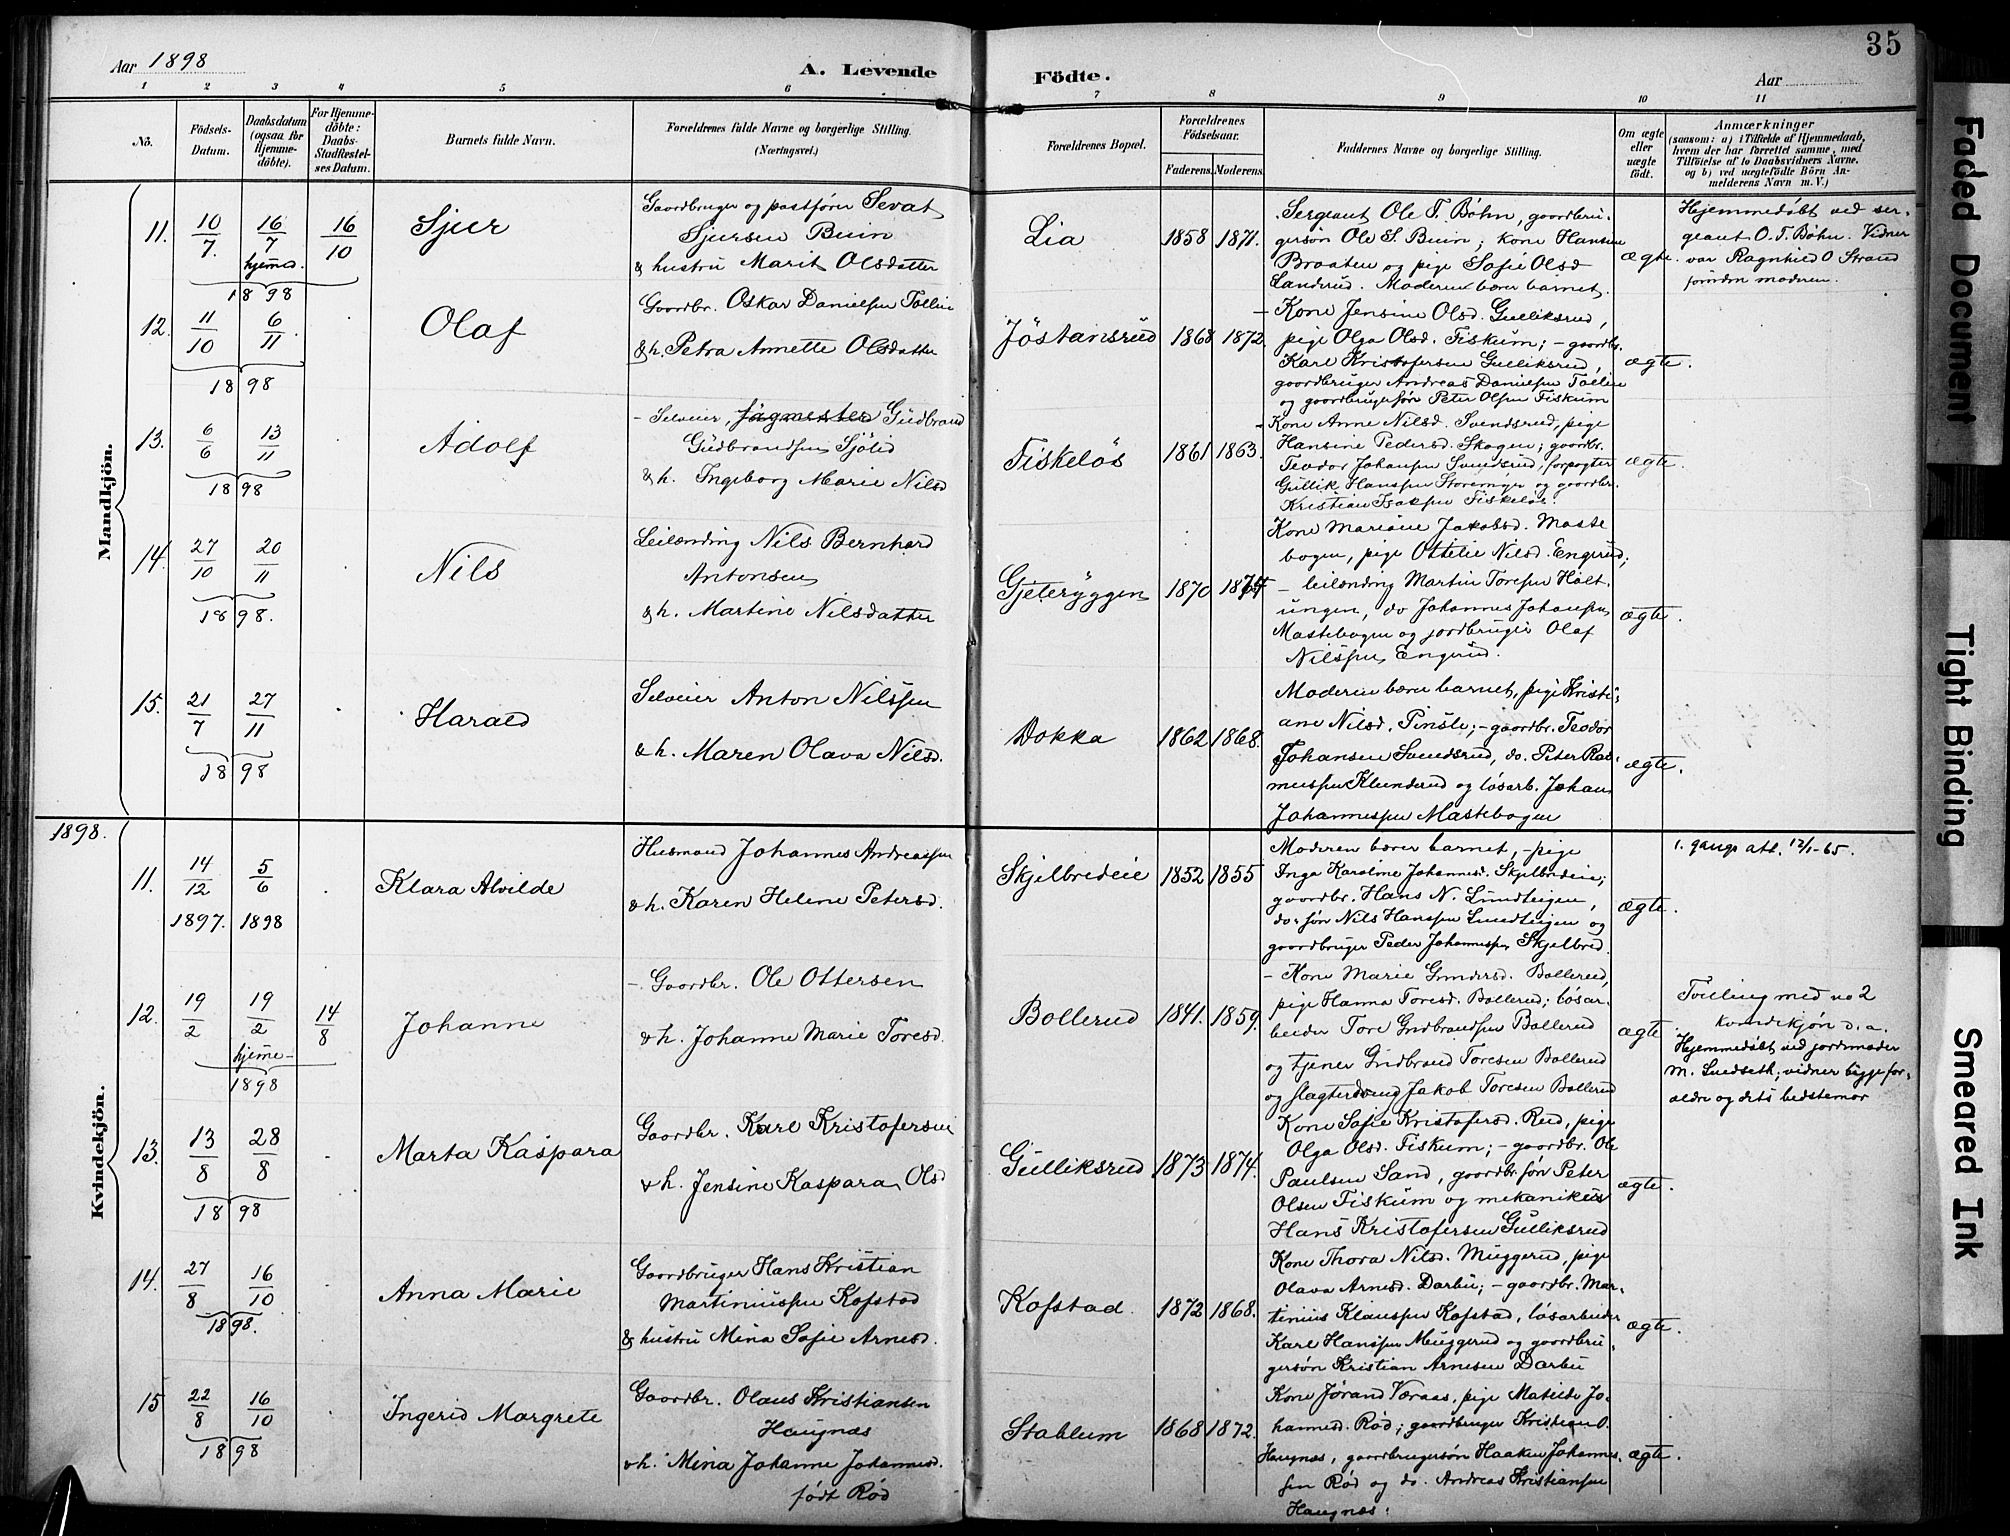 35
Aar 1898
A. Levende
Födte.
Aar
1 2 3 4 5 6 7 8 9 10 11
No.
Födsels-
Datum.
Daabsdatum
(ogsaa for
Hjemme-
döbte).
For Hjemme-
döbte:
Daabs-
Stadfæstel-
ses Datum.
Barnets fulde Navn.
Forældrenes fulde Navne og borgerlige Stilling.
(Næringsvei.)
Forældrenes Bopæl.
Forældrenes
Födselsaar.
Faderens.
Moderens.
Faddernes Navne og borgerlige Stilling.
Om ægte
eller
uægte
födt.
Anmærkninger
(saasom: a) i Tilfælde af Hjemmedaab,
hvem der har forrettet samme, med
Tilföielse af to Daabsvidners Navne,
og b) ved uægtefödte Börn An-
melderens Navn m. V.)
Mandkjön.
11.
10/7.
16/7
hjemed.
16/10
1898
Sjur
Gaardbruger og postfører Sevat
Sjursen Buin
& hustru Marit Olsdatter
Lia
1858
1871.
Sergeant Ole T. Bøhn, gaardbru-
gersøn Ole S. Buin; kone Hansine
Braaten og pige Sofie Olsd
Landerud. Moderen bærer barnet.
ægte.
Hjemmedøbt ved ser-
geant O. T. Bøhn. Vidner
var Ragnhild O Strand
foruden moderen.
12.
11/10
6/11
1898
Olaf
Gaardbr. Oskar Danielsen Tollin
& h. Petra Annette Olsdatter
Jöstansrud
1868
1872.
– Kone Jensine Olsd. Gulliksrud,
pige Olga Olsd. Fiskum; – gaardbr.
Karl Kristofersen Gulliksrud,
gaardbruger Andreas Danielsen Tollin
og gaardbrugersøn Peter Olsen Fiskum
ægte.
13.
6/6
13/11
1898
Adolf
– Selveier, jägmester Gudbrand
Gudbrandsen Sjölid
& h. Ingeborg Marie Nilsd
Fiskelös
1861
1863.
– Kone Anne Nilsd. Svendsrud, pige
Hansine Pedersd. Skogen; gaardbr.
Teodor Johansen Svendsrud, forpagter
Gullik Hanssen Storemyr og gaardbr.
Kristian Isaksen Fiskeløs.
ægte.
14.
27/10
20/11
1898.
Nils
Leilænding Nils Bernhard
Antonsen
& h. Martine Nilsdatter
Gjeteryggen
1870
Kone Mariane Jakobsd. Maste
bogen, pige Ottilie Nilsd. Engerud;
– leilænding Martin Toresen Holt-
ungen, do Johannes Johansen
Mastebogen og jordbruger Olaf
Nilssen Engerud.
ægte.
15.
21/7
27/11
1898
Harald
Selveier Anton Nilssen
& h. Maren Olava Nilsd.
Dokka
1862
1868.
Moderen bærer barnet, pige Kristi-
ane Nilsd. Pinsle; – gaardbr. Teodor
Johansen Svendsrud, do. Peter Ras-
mussen Klunderud og løsarb. Johan
Johannessen Mastebogen
ægte.
1898.
Kvindekjön.
11.
14/12
5/6
1897. 1898
Klara Alvilde
Husmand Johannes Andreassen
& h. Karen Helene Petersd.
Skjelbredeie
1852
1855
Moderen bærer barnet, – pige
Inga Karoline Johannesd. Skjelbredeie;
gaardbr. Hans N. Lundteigen,
do. søn Nils Hanssen Lundteigen og
gaardbruger Peder Johannessen Skjelbred.
ægte.
1. gangs att. 12/1-65.
12.
19/2
19/2
hjeme-
14/8
1898
Johanne
– Gaardbr. Ole Ottersen
& h. Johanne Marie Toresd.
Bollerud
1841.
1859.
– Kone Marie Gundersd. Bollerud,
pige Hanna Toresd. Bollerud; løsar-
beider Tore Gudbrandsen Bollerud
og tjener Gudbrand Toresen Bollerud
og slagterdreng Jakob Toresen Bollerud
ægte
Tvilling med no 2
kvindekjön d. a.
Hjemmedøbt ved jordmoder
M. Lundseth; vidner begge for-
ældre og dets bedstemor
13.
13/8
28/8
1898
Marta Kaspara
Gaardbr. Karl Kristofersen
& h. Jensine Kaspara Olsd
Gulliksrud
1873
1874.
Kone Sofie Kristofersd. Rud, pige
Olga Olsd. Fiskum; – gaardbr. Ole
Paulsen Sand, gaardbr. søn Peter
Olsen Fiskum og mekanikus
Hans Kristofersen Gulliksrud
ægte.
14.
27/8
16/10
1898.
Anna Marie
Gaardbruger Hans Kristian
Martiniussen Kofstad
& hustru Mina Sofie Arnesd.
Kofstad.
1872
1868.
Kone Thora Nilsd. Muggerud, pige
Olava Arnesd. Darbu; – gaardbr. Mar-
tinius Klaussen Kofstad, løsarbeider
Karl Hanssen Muggerud og gaardbru-
gersøn Kristian Arnesen Darbu
ægte.
15
22/8
16/10
1898
Ingerid Margrete
Gaardbr. Olaus Kristiansen
Haugnæs
& h. Mina Johanne Johannesd.
født Rød
Stablum
1868
1872.
Kone Jørand Væraas, pige Matilde Jo-
hannesd. Rød; gaardbruger Kristian O.
Haugnæs, gaardbrugersøn Haaken Johannes-
sen Rød og do. Andreas Kristiansen
Haugnæs.
ægte.
Faded Document
Tight Binding
Smeared Ink